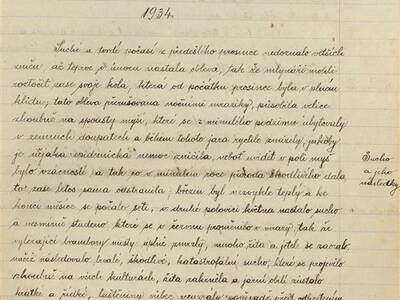 1934.
Suché a tvrdé počasí z předešlého prosince nedoznalo větších
změn, až teprve v únoru nastala obleva, tak že mlynáři mohli
roztočit zase svoje kola, která od počátku prosince byla v plném
klidu; tato obleva přerušována nočními mrazíky, působila velice
zhoubně na spousty myší, které se z minulého podzimu ubytovaly
v zemních doupatech a během tohoto jara rychle zmizely, jakoby
je nějaká epidemická nemoc zničila, neboť uvidět v poli myš
bylo vzácností a tak co v minulém roce příroda škodlivého dala
to zase letos sama odstranila. březen byl nezvykle teplý a ke
konci měsíce se počalo séti, v druhé polovici května nastalo sucho
a nesmírně studeno, které se v červnu proměnilo v mrazy, tak že
vylézající brambory úplně zmrzly, mnoho žita a jetele se
následovalo trvalé, škodlivé, katastrofální sucho, které se projevilo
zhoubně na všech kulturách, žita zakrněla a jarní obilí zůstalo
krátké a řídké, luštěniny vůbec
Sucho
a jeho
následky.